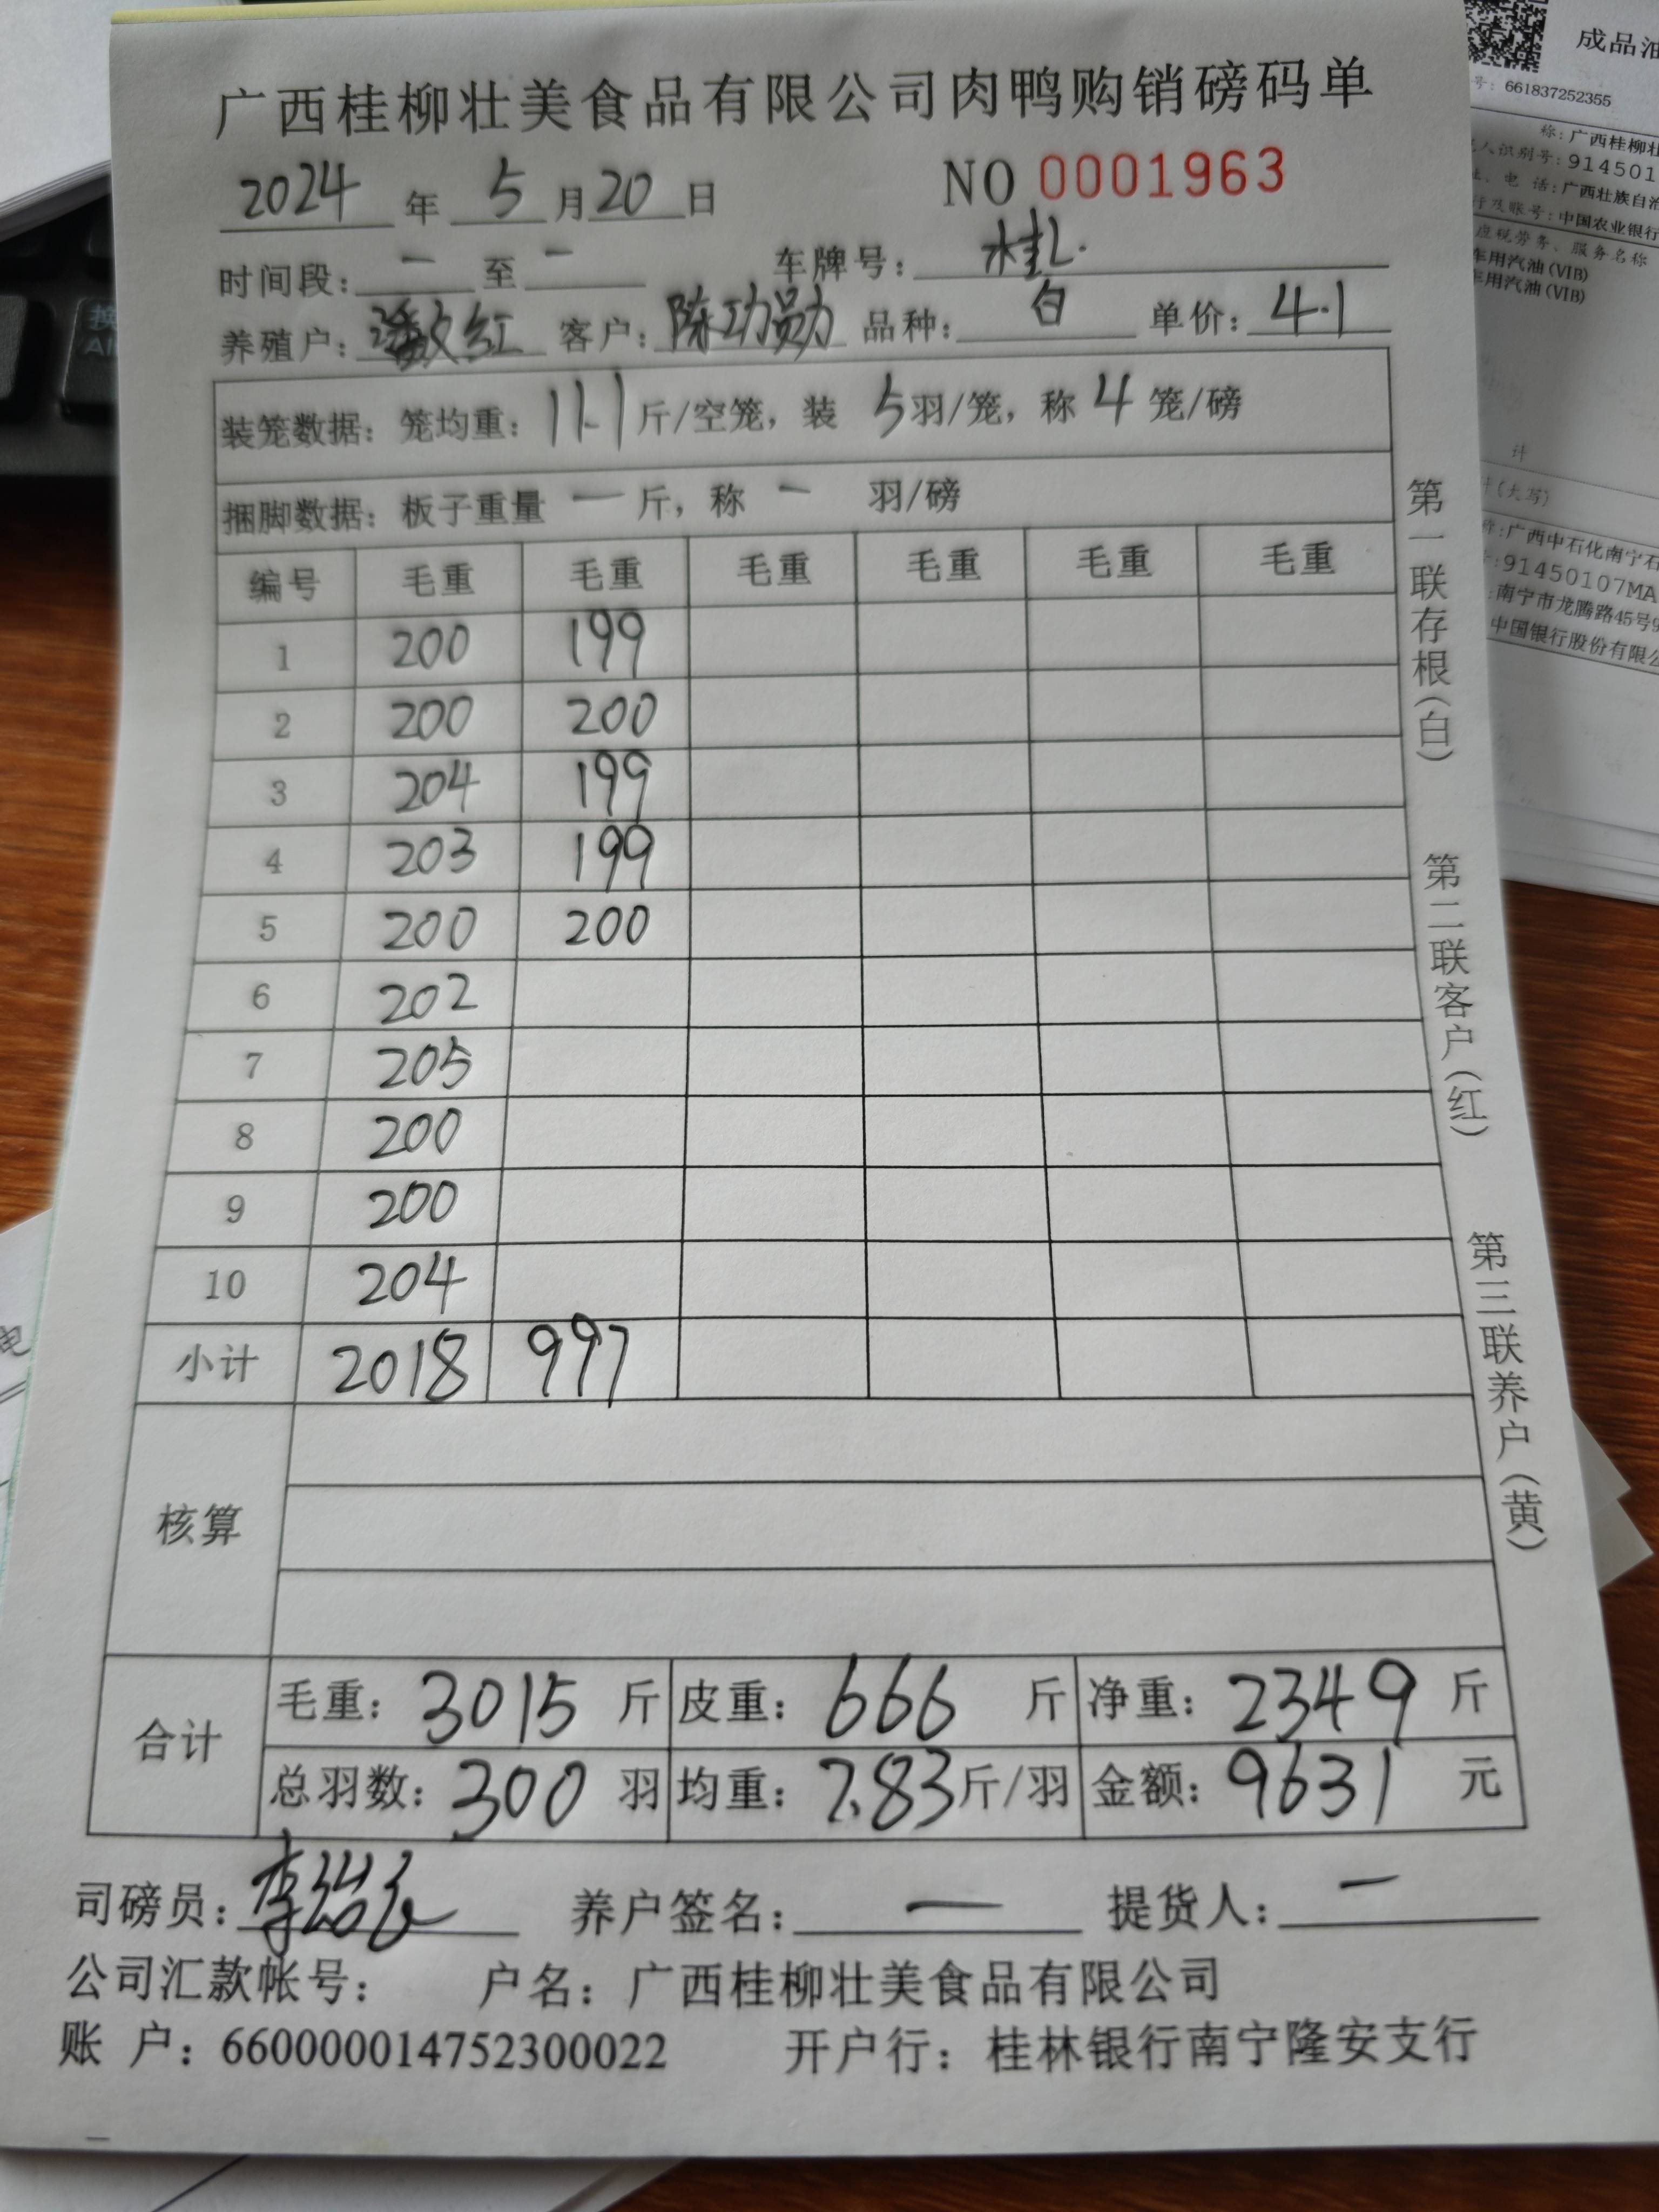 广西桂柳壮美食品有限公司肉鸭购销磅码单
2024 年 5 月 20 日 NO 0001963
时间段: 一 至 一 车牌号:
养殖户: 红 客户: 陈功勋 品种: 白 单价: 4.1
装笼数据: 笼均重: 11.1 斤/空笼, 装 5 羽/笼, 称 4 笼/磅
捆脚数据: 板子重量 一 斤, 称 一 羽/磅
编号 毛重 毛重 毛重 毛重 毛重 毛重
1 200 199
2 200 200
3 204 199
4 203 199
5 200 200
6 202
7 205
8 200
9 200
10 204
小计 2018 997
核算
合计
毛重: 3015 斤 皮重: 666 斤 净重: 2349 斤
总羽数: 300 羽 均重: 7.83 斤/羽 金额: 9631 元
司磅员: 李 养户签名: 一 提货人: 一
公司汇款帐号: 户名: 广西桂柳壮美食品有限公司
账 户: 660000014752300022 开户行: 桂林银行南宁隆安支行
第一联存根(白) 第二联客户(红) 第三联养户(黄)
成品油
号: 661837252355
称: 广西桂柳壮
人识别号: 914501
址、电 话: 广西壮族自治
行及账号: 中国农业银行
应税劳务、服务名称
车用汽油(VIB)
车用汽油(VIB)
计
(大写)
称: 广西中石化南宁石
91450107MA
南宁市龙腾路45号9
中国银行股份有限公